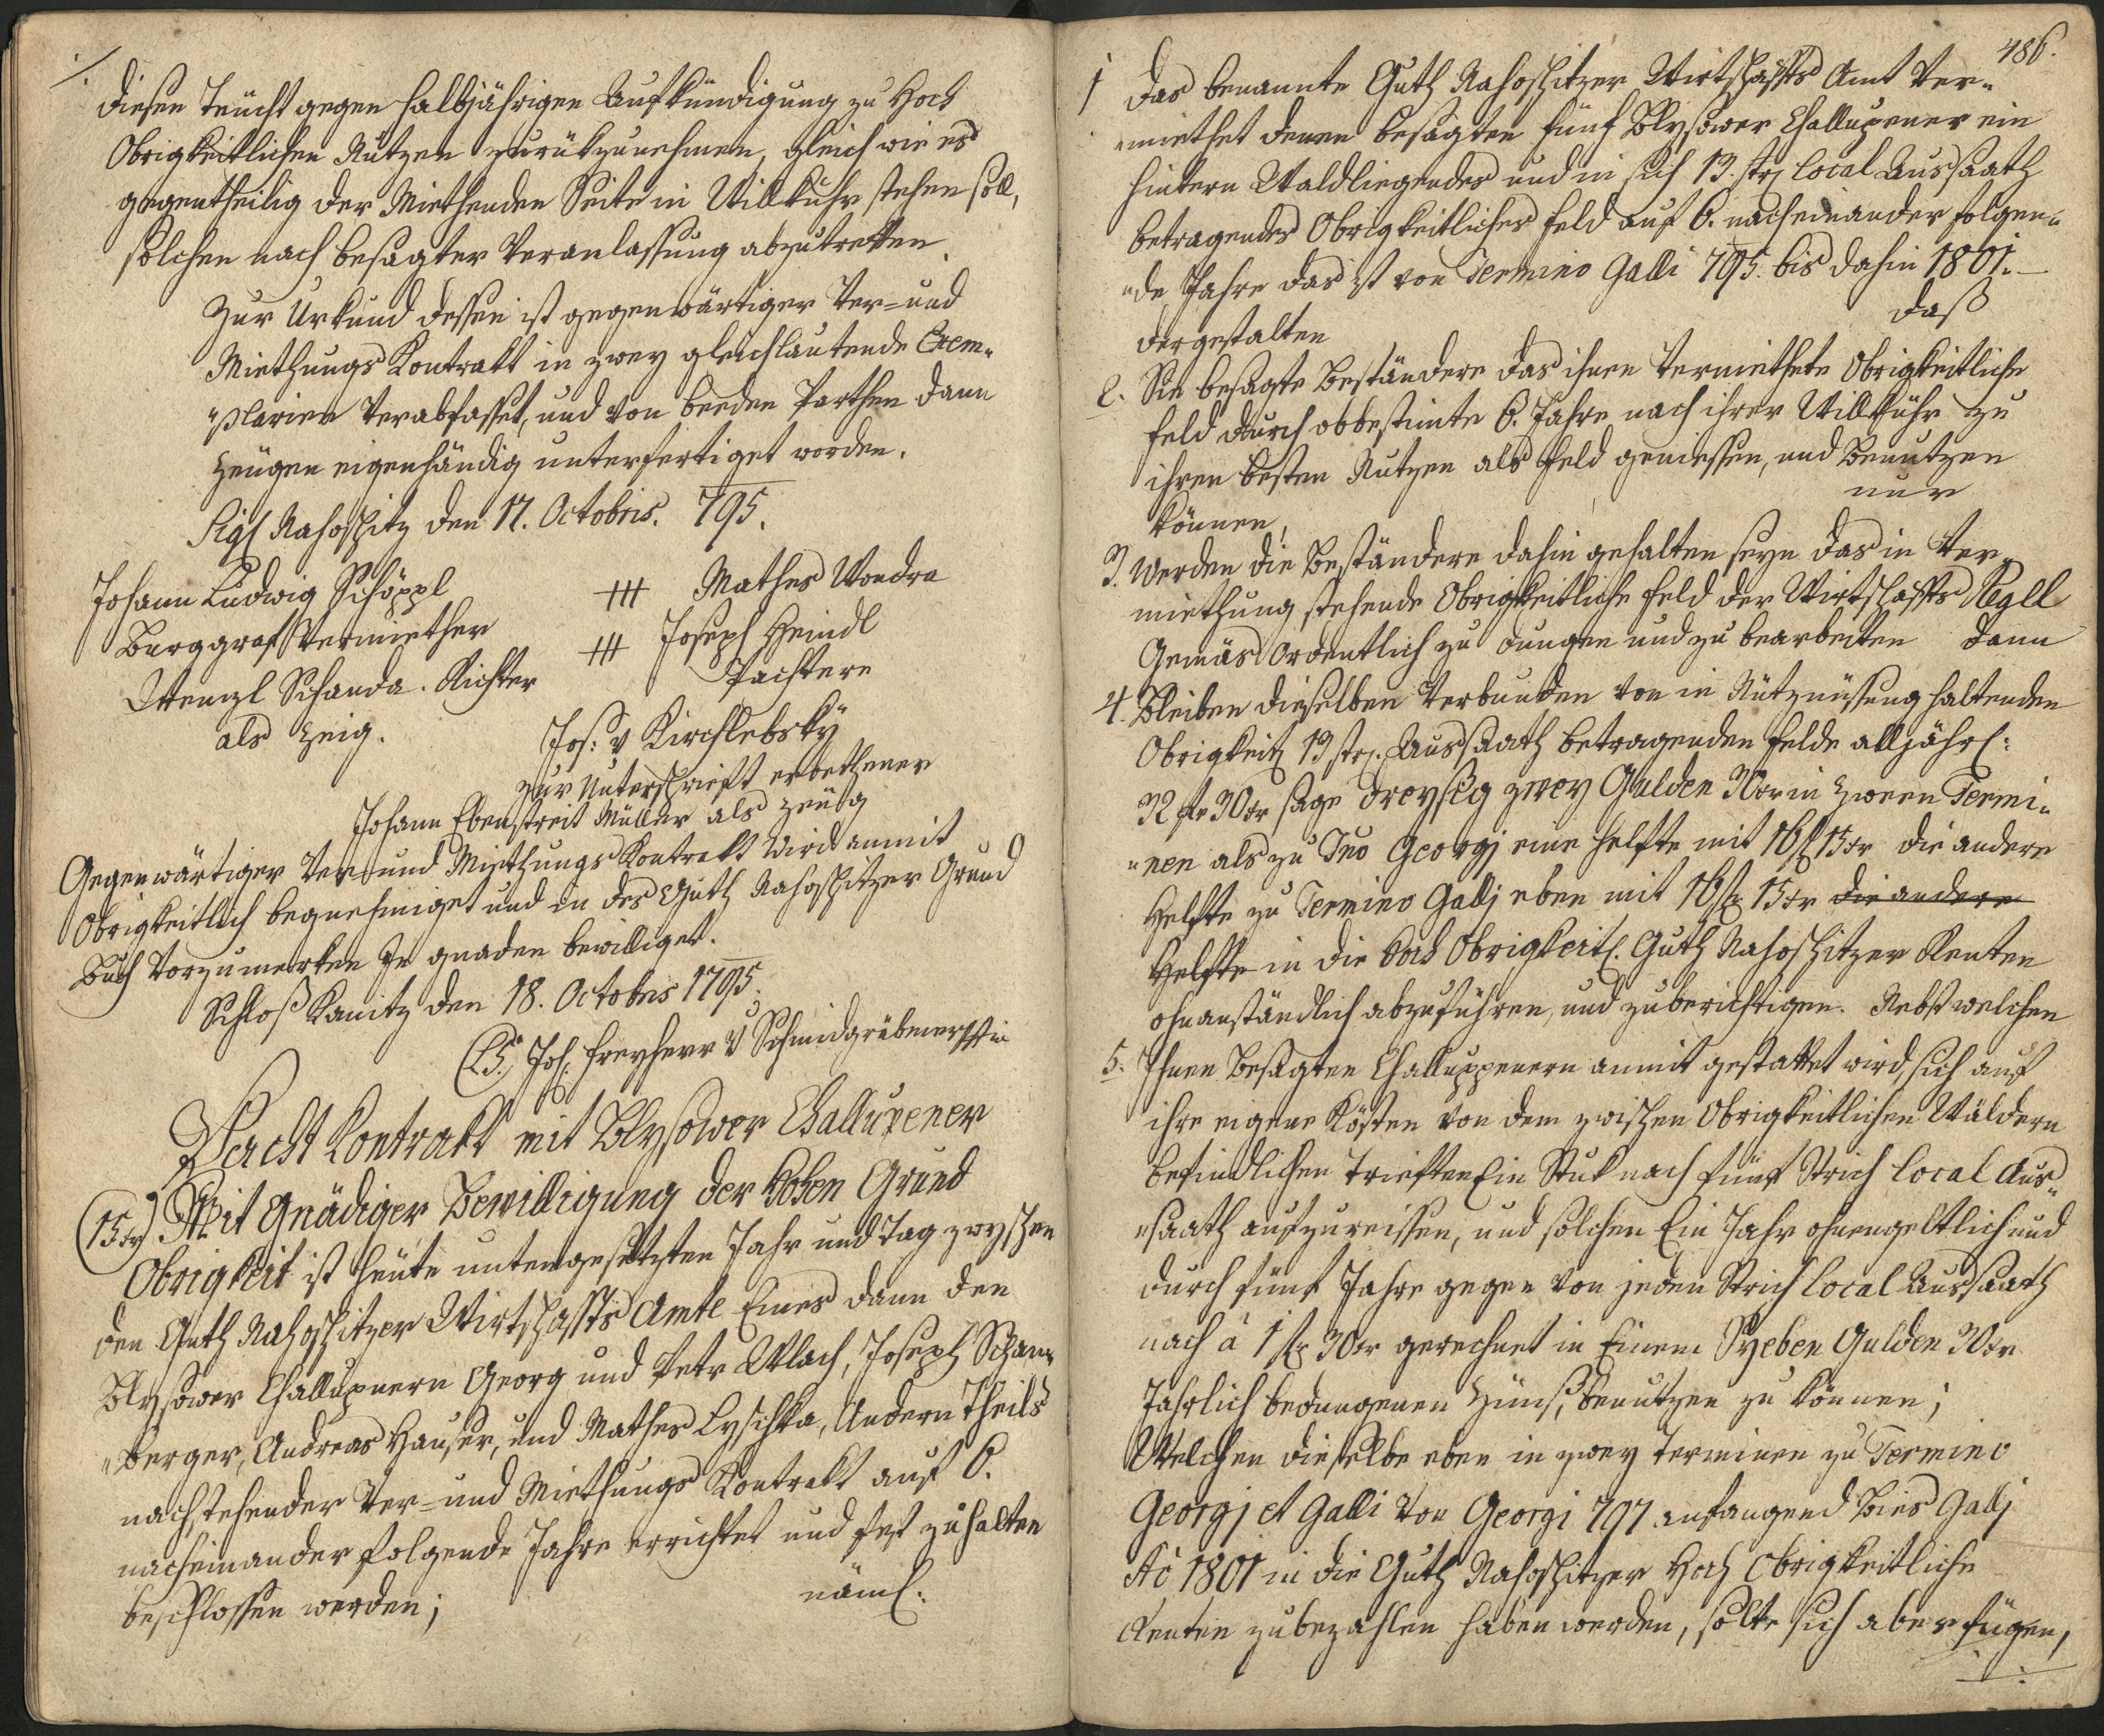 ./.
diesen Teücht gegen halbjährigen Aufkündigung zu Hoch
Obrigkeitlichen Nutzen zurükzunehmen, gleich wie es
gegentheilig der Miethenden Seite in Willkuhr stehen soll,
solchen nach besagter Veranlassung abzutretten.
Zur Urkund dessen ist gegenwärtiger Ver- und
Miethungs Kontrakt in zwey gleichlautende Exem-
"plarien Verabfasset, und von beeden Parthen dann
Zeugen eigenhändig unterfertiget worden.
Sigl Nahoschitz den 17. Octobris. 795.
Johann Ludwig Schöppl
Burggraf Vermiether
Wenzl Schanda. Richter
als Zeig.
+++ Mathes Wondra
+++ Joseph Heindl
Pachtere
Jos: v Kirchlebskÿ
zur Unterschrieft erbethener
Johann Ebenstreit Müller als zeüg
Gegenwärtiger Ver- und Miethungs Kontrakt wird anmit
Obrigkeitlich begnehmiget und in des Guth Nahoschitzer Grund
Buch Vorzumerken Jn gnaden bewilliget.
Schloß Kanitz den 18. Octobris 1795.
(L.S.) Joh. Freyherr v Schmidgräbner
Pacht Kontrakt mit Blysower Challupener
(15 xr) Mit Gnädiger Bewilligung der Hohen Grund
Obrigkeit ist heute untengesetzten Jahr und Tag zwyschen
den Guth Nahoschitzer Wirtschaffts Amte Eines dann den
Blysower Challupnern Georg und Petr Wlach, Joseph Scham-
"berger, Andreas Hauser, und Mathes Lyschka, Andern Theils
nachstehender Ver- und Miethungs Kontrakt auf 6.
nacheinander folgende Jahre errichtet und fest zuhalten
beschlossen worden;
näml.
486.
1 Das benannte Guth Nahoschitzer Wirtschaffts Amt Ver-
"miethet denen besagten fünf Blysower Challupener ein
hintern Waldliegendes und in sich 13. str local Aussaath
betragendes Obrigkeitliches Feld auf 6. nacheinander folgen-
"de Jahre das ist von Termino Galli 795. bis dahin 1801. —
dergestalten
daß
2. Sie besagte Beständere das ihnen Vermiethete Obrigkeitliche
Feld durch obbestimte 6. Jahre nach ihrer Willkühr zu
ihren besten Nutzen als Feld geniessen, und Benutzen
können,
nur
3. Werden die Beständere dahin gehalten seyn das in Ver-
miethung stehende Obrigkeitliche Feld der Wirtschaffts Regll
Gemäs Ordentlich zu dungen und zu bearbeiten dann
4. Bleiben dieselben Verbunden von in Nutznüssung haltenden
Obrigkeitl 13 str. Aussaath betragenden Felde alljährl:
32 fr 30 xr sage dreyßig zwey Gulden 30 xr in zween Termi-
"nen als zu Tno Georgj eine Helfte mit 16 f 15 xr die andere
Helfte zu Termino Gallj eben mit 16 f 15 xr die andere
Helfte in die Hoch Obrigkeitl. Guth Nahoschitzer Renten
ohnanständlich abzuführen, und zuberichtigen. Nebst welchen
5. Ihnen Besagten Challuppenern anmit gestattet wird, sich auf
ihre eigene Kösten von dem zwischen Obrigkeitlichen Wäldern
befindlichen Trieften Ein Stuk nach fünf Strich local Aus-
"saath aufzureissen, und solchen Ein Jahr ohnengeltlich und
durch fünf Jahre gegen von jeden Strich local Aussaath
nach à 1 f 30 xr gerechnet in Einem Syeben Gulden 30 xr
Jahrlich bedungenen Zünß, benutzen zu können;
Welchen dieselbe eben in zwey Terminen zu Termino
Georgj et Galli von Georgi 797 anfangend Bies Gallj
Aõ 1801 in die Guth Nahoschitzer Hoch Obrigkeitliche
Renten zubezahlen haben werden, solte sich aber fügen,
./.